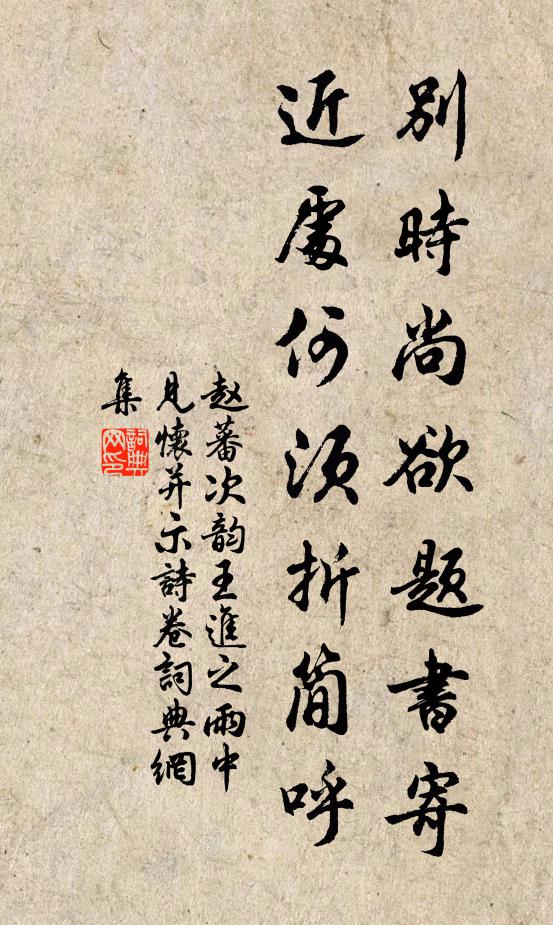 别時尚欲题書寄
近處何須折簡呼
赵蕃次韵王進之雨中
見懷并示詩卷詞典網
集
詞典
网印